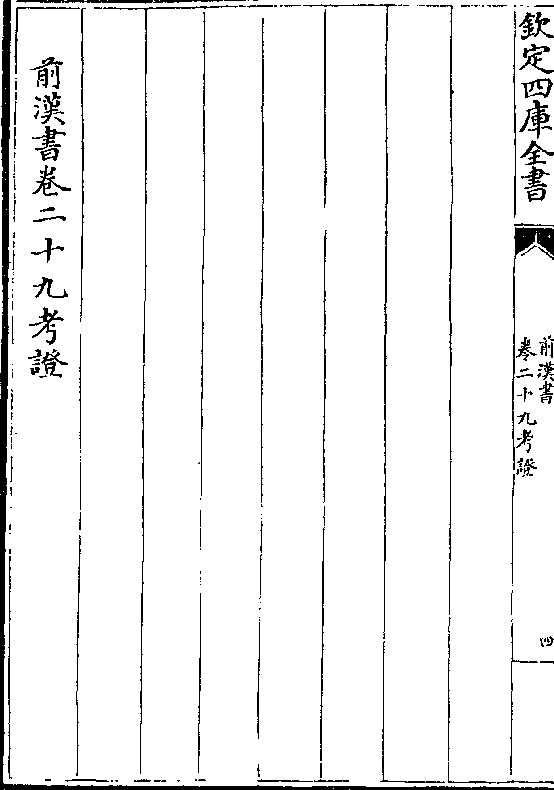 欽定四庫全書
前漢書
卷二十九考證
四
前漢書卷二十九考證